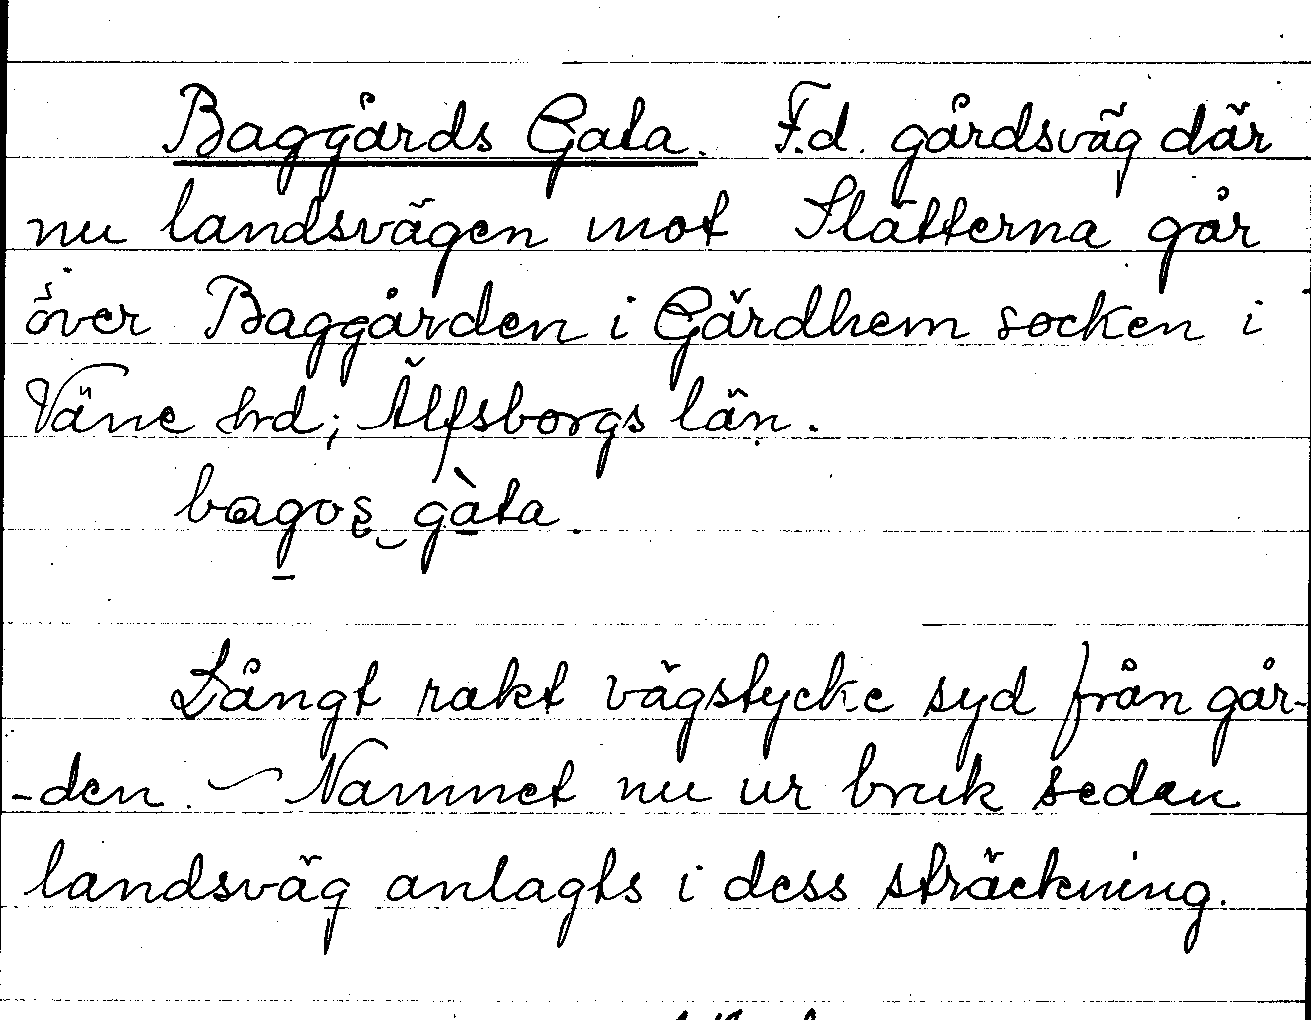 Baggårds Gata. F.d. gårdsväg där
nu landsvägen mot Slätterna går
över Baggården i Gärdhem socken i
Väne hrd; Älfsborgs län.
bagos gàta.
Långt rakt vägstycke syd från går-
-den. – Namnet nu ur bruk sedan
landsväg anlagts i dess sträckning.